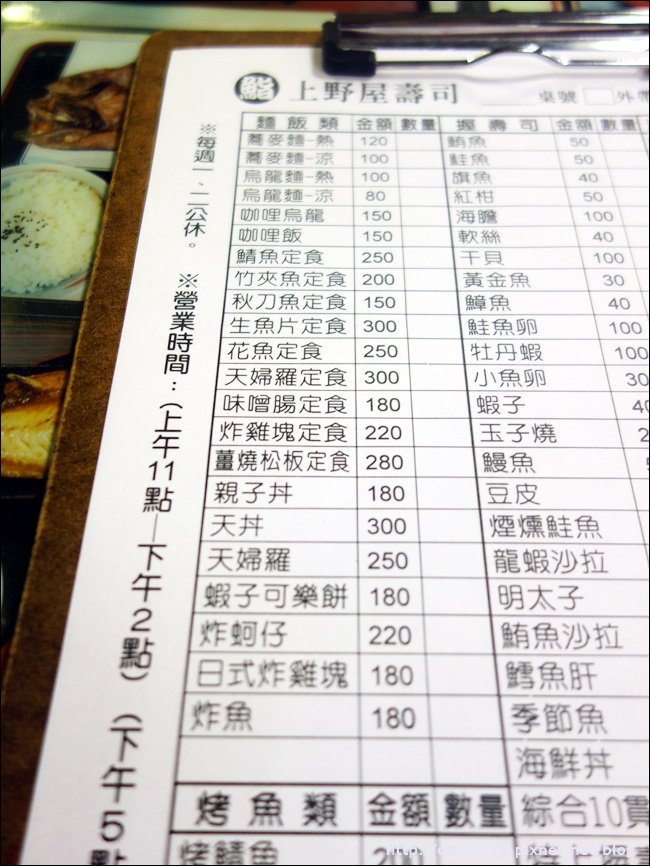 鮨 上野屋壽司 桌號 外帶
麵飯類 金額 數量 握壽司 金額 數量
蕎麥麵-熱 120 鮪魚 50
蕎麥麵-涼 100 鮭魚 50
烏龍麵-熱 100 旗魚 40
烏龍麵-涼 80 紅柑 50
咖哩烏龍 150 海膽 100
咖哩飯 150 軟絲 40
鯖魚定食 250 干貝 100
竹夾魚定食 200 黃金魚 30
秋刀魚定食 150 鱆魚 40
生魚片定食 300 鮭魚卵 100
花魚定食 250 牡丹蝦 100
天婦羅定食 300 小魚卵 30
味噌腸定食 180 蝦子
炸雞塊定食 220 玉子燒
薑燒松板定食 280 鰻魚
親子丼 180 豆皮
天丼 300 煙燻鮭魚
天婦羅 250 龍蝦沙拉
蝦子可樂餅 180 明太子
炸蚵仔 220 鮪魚沙拉
日式炸雞塊 180 鱈魚肝
炸魚 180 季節魚
海鮮丼
烤魚類 金額 數量 綜合10貫
烤鯖魚
※每週一、二公休。 ※營業時間：（上午11點—下午2點）（下午5點